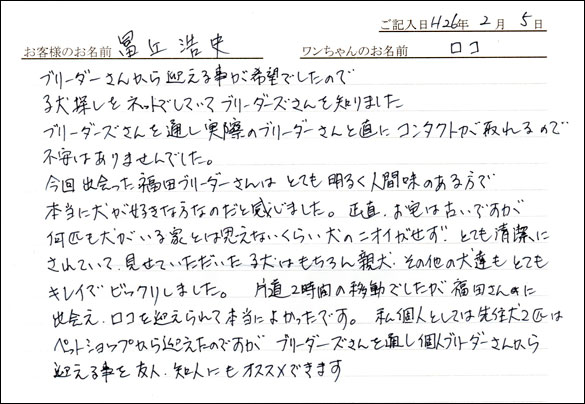 ご記入日H26年 2月 5日
お客様のお名前 冨丘浩史 ワンちゃんのお名前 ロコ
ブリーダーさんから迎える事が希望でしたので
子犬探しをネットでしていてブリーダーズさんを知りました
ブリーダーズさんを通し実際のブリーダーさんと直にコンタクトが取れるので
不安はありませんでした。
今回出会った福田ブリーダーさんはとても明るく人間味のある方で
本当に犬が好きな方なのだと感じました。正直、お宅は古いですが
何匹も犬がいる家とは思えないくらい犬のニオイがせず、とても清潔に
されていて、見せていただいた子犬はもちろん親犬・その他の犬達もとても
キレイでビックリしました。 片道2時間の移動でしたが福田さんに
出会え、ロコを迎えられて本当によかったです。私個人としては先住犬2匹は
ペットショップから迎えたのですがブリーダーズさんを通し個人ブリーダーさんから
迎える事を友人、知人にもオススメできます